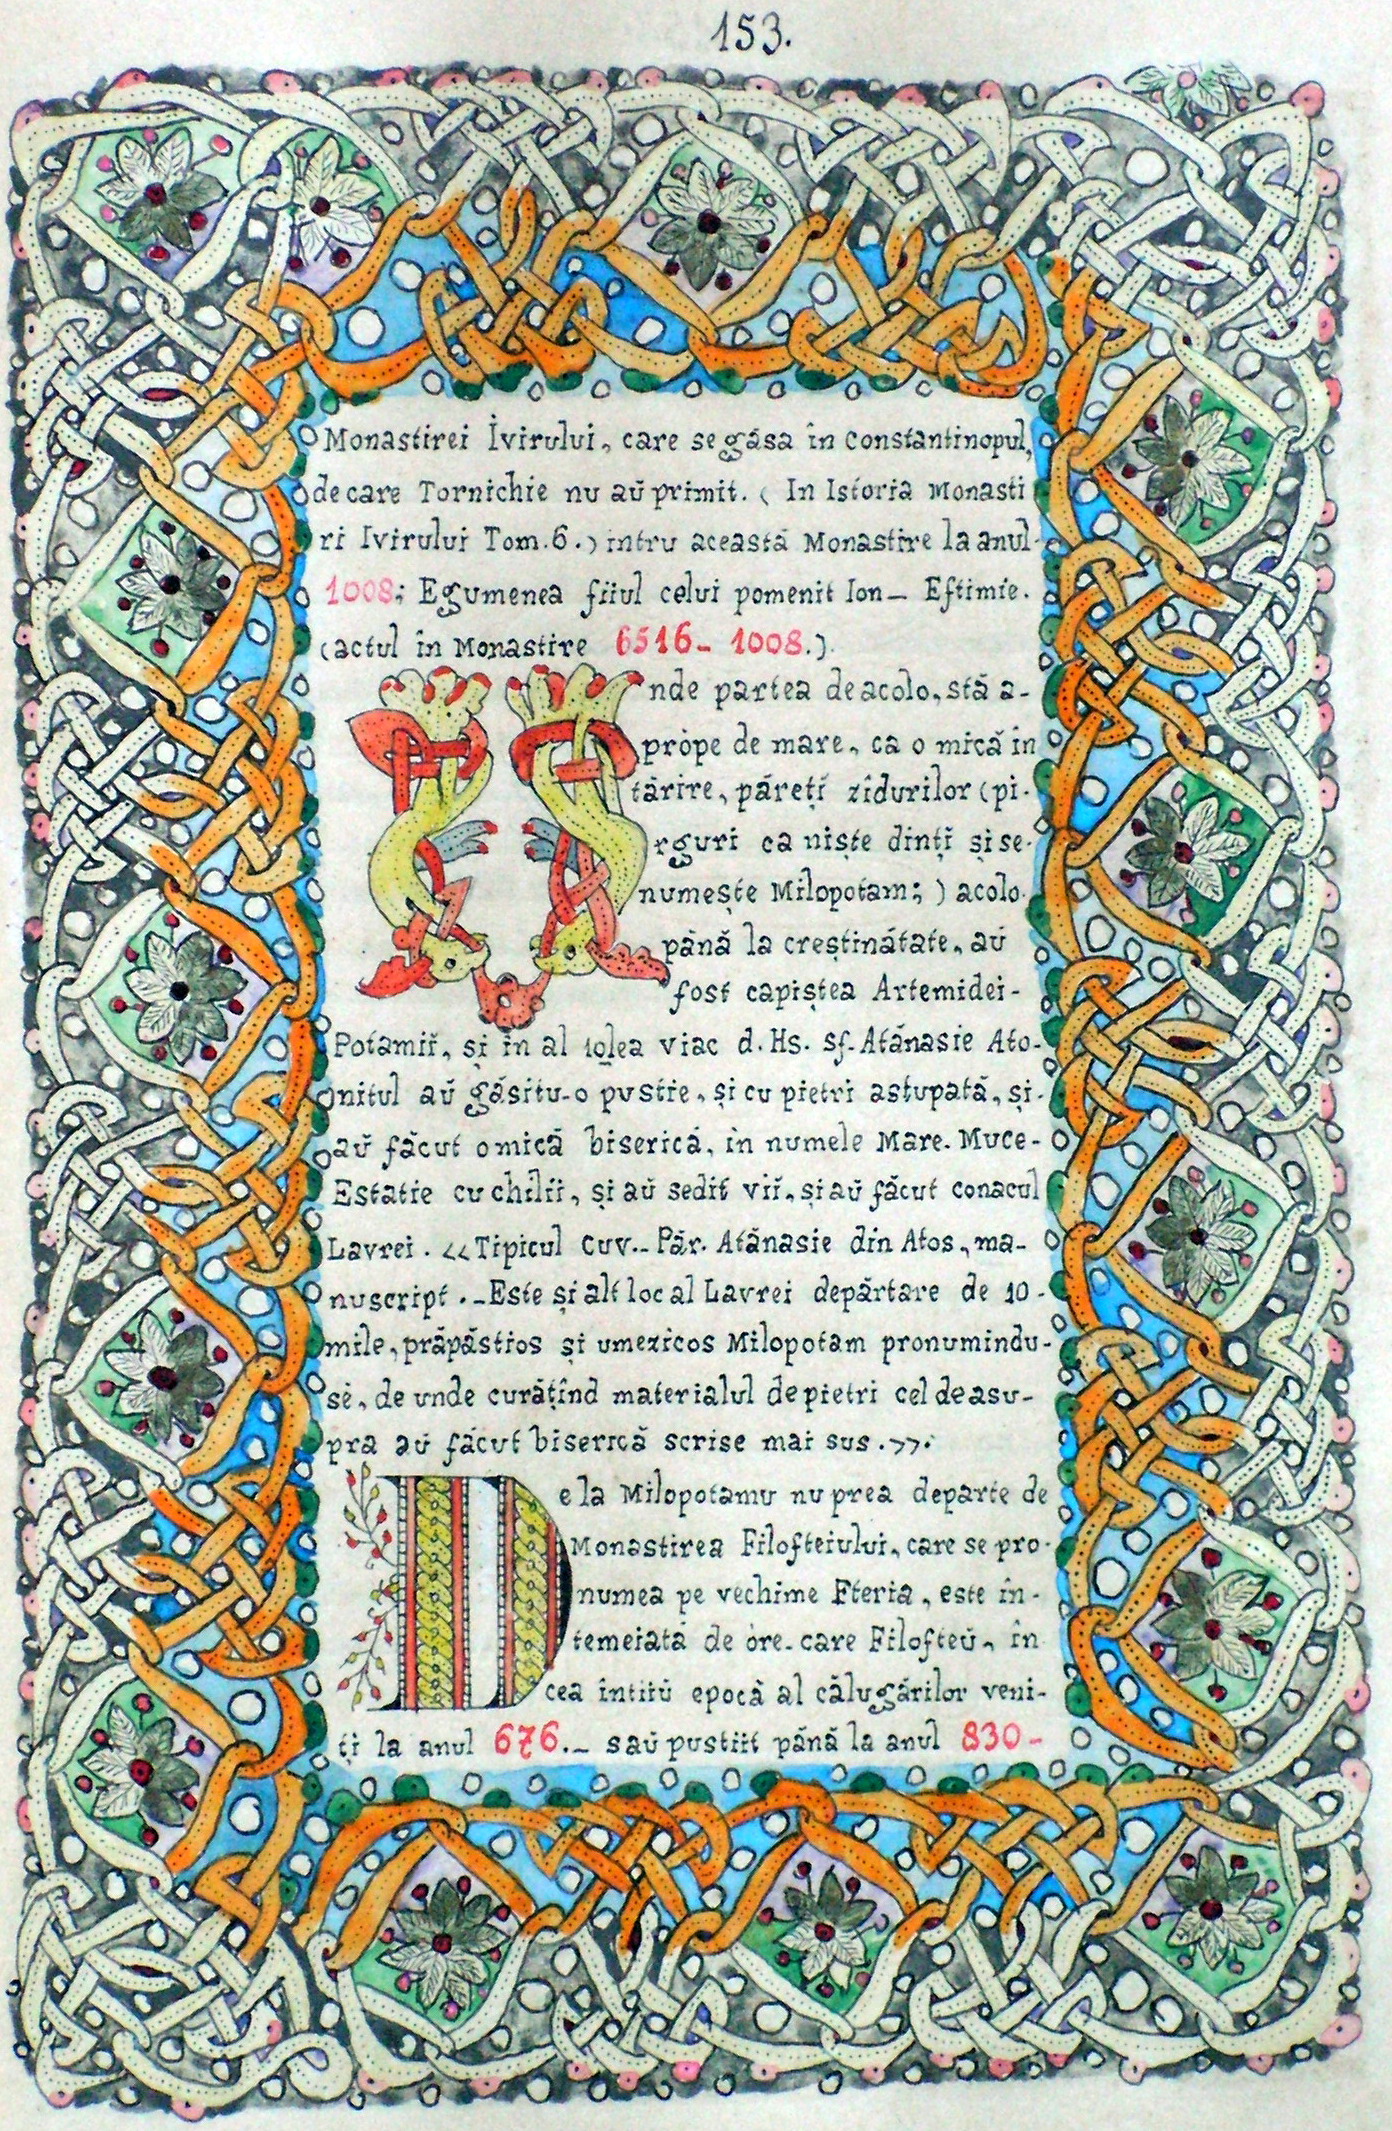 153.
Monastirei Ivirului, care se găsa în Constantinopul,
de care Tornichie nu aŭ primit. ( In Istoria Monasti
ri Ivirului Tom. 6.) intru această Monastire la anul-
1008; Egumenea fiiul celui pomenit Ion_ Eftimie.
(actul în Monastire 6516_ 1008.).
Unde partea de acolo, stă a-
prŏpe de mare, ca o mică în
tărire, păreți zidurilor (pi-
rguri ca niște dinți și se-
numește Milopotam; ) acolo
până la creștinătate, aŭ
fost capiștea Artemidei-
Potamiĭ, și în al 10lea viac d. Hs. sf. Atănasie Ato-
nitul aŭ găsitu-o pustie, și cu pietri astupată, și-
aŭ făcut o mică biserică, in numele Mare. Muce-
Estatie cu chiliĭ, și aŭ sedit viĭ, și aŭ făcut conacul
Lavrei. «Tipicul Cuv.. Păr. Atănasie din Atos, ma-
nuscript ._Este și alt loc al Lavrei depărtare de 10-
mile, prăpăstios și umezicos Milopotam pronumindu-
sĕ, de unde curățînd materialul de pietri cel de asu-
pra aŭ făcut biserică scrise mai sus.».
De la Milopotamu nu prea departe de
Monastirea Filofteiului, care se pro-
numea pe vechime Fteria, este în-
temeiată de ŏre-care Filofteŭ, în
cea intiiŭ epocă al călugărilor veni-
ți la anul 676._ saŭ pustiit până la anul 830-